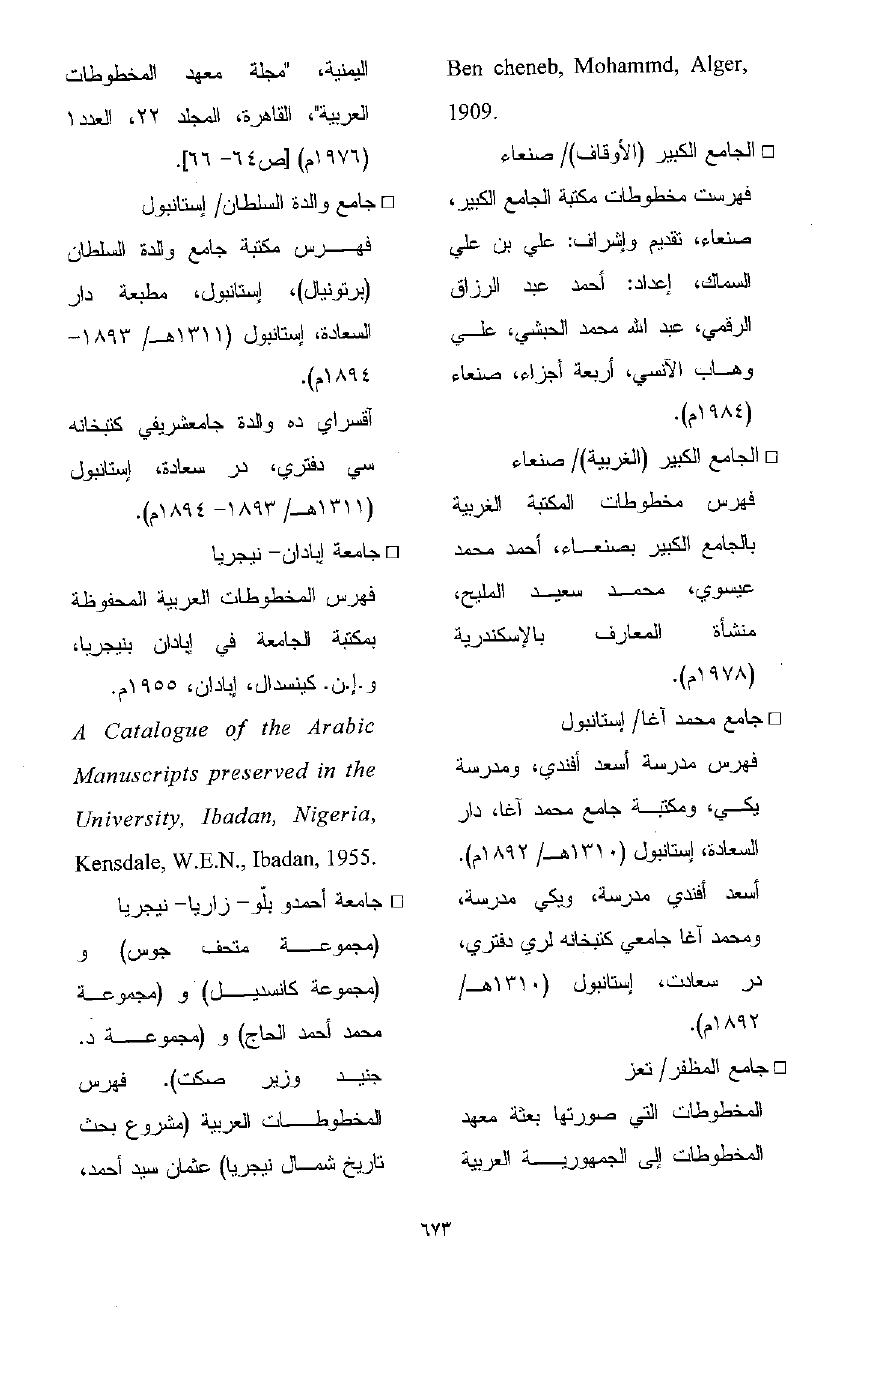 Ben cheneb, Mohammd, Alger,
1909.
□ الجامع الكبير (الأوقاف)/ صنعاء
فهرست مخطوطات مكتبة الجامع الكبير،
صنعاء، تقديم وإشراف: علي بن علي
السمالك، إعداد: أحمد عبد الرزاق
الرقمي، عبد الله محمد الحبشي، علـي
وهـاب الآنسي، أربعة أجزاء، صنعاء
(١٩٨٤م).
□ الجامع الكبير (الغربية)/ صنعاء
فهرس مخطوطات المكتبة الغربية
بالجامع الكبير بصنعـاء، أحمد محمد
عيسوي، محمـد سعيـد المليح،
منشأة المعارف بالإسكندرية
(١٩٧٨م).
□ جامع محمد آغا/ إستانبول
فهرس مدرسة أسعد أفندي، ومدرسة
يكـي، ومكتبـة جامع محمد آغا، دار
السعادة، إستانبول (١٣١٠هـ/ ١٨٩٢م).
أسعد أفندي مدرسة، ويكي مدرسة،
ومحمد آغا جامعي كتبخانه لري دفتري،
در سعادت، إستانبول (١٣١٠هـ/
١٨٩٢م).
□ جامع المظفر/ تعز
المخطوطات التي صورتها بعثة معهد
المخطوطات إلى الجمهوريـة العربية
اليمنية، "مجلة معهد المخطوطات
العربية"، القاهرة، المجلد ٢٢، العدد١
(١٩٧٦م) [ص٦٤- ٦٦].
□ جامع والدة السلطان/ إستانبول
فهـرس مكتبة جامع والدة السلطان
(برتونيال)، إستانبول، مطبعة دار
السعادة، إستانبول (١٣١١هـ/ ١٨٩٣-
١٨٩٤م).
آقسراي ده والدة جامعشريفي كتبخانه
سي دفتري، در سعادة، إستانبول
(١٣١١هـ/ ١٨٩٣- ١٨٩٤م).
□ جامعة إبادان- نيجريا
فهرس المخطوطات العربية المحفوظة
بمكتبة الجامعة في إبادان بنيجريا،
و.إ.ن. كينسدال، إبادان، ١٩٥٥م.
A Catalogue of the Arabic
Manuscripts preserved in the
University, Ibadan, Nigeria,
Kensdale, W.E.N., Ibadan, 1955.
□ جامعة أحمدو بلّو- زاريا- نيجريا
(مجموعـة متحف جوس) و
(مجموعة كانسديـل) و (مجموعـة
محمد أحمد الحاج) و (مجموعـة د.
جنيـد وزير صكت). فهرس
المخطوطـات العربية (مشروع بحث
تاريخ شمـال نيجريا) عثمان سيد أحمد،
٦٧٣